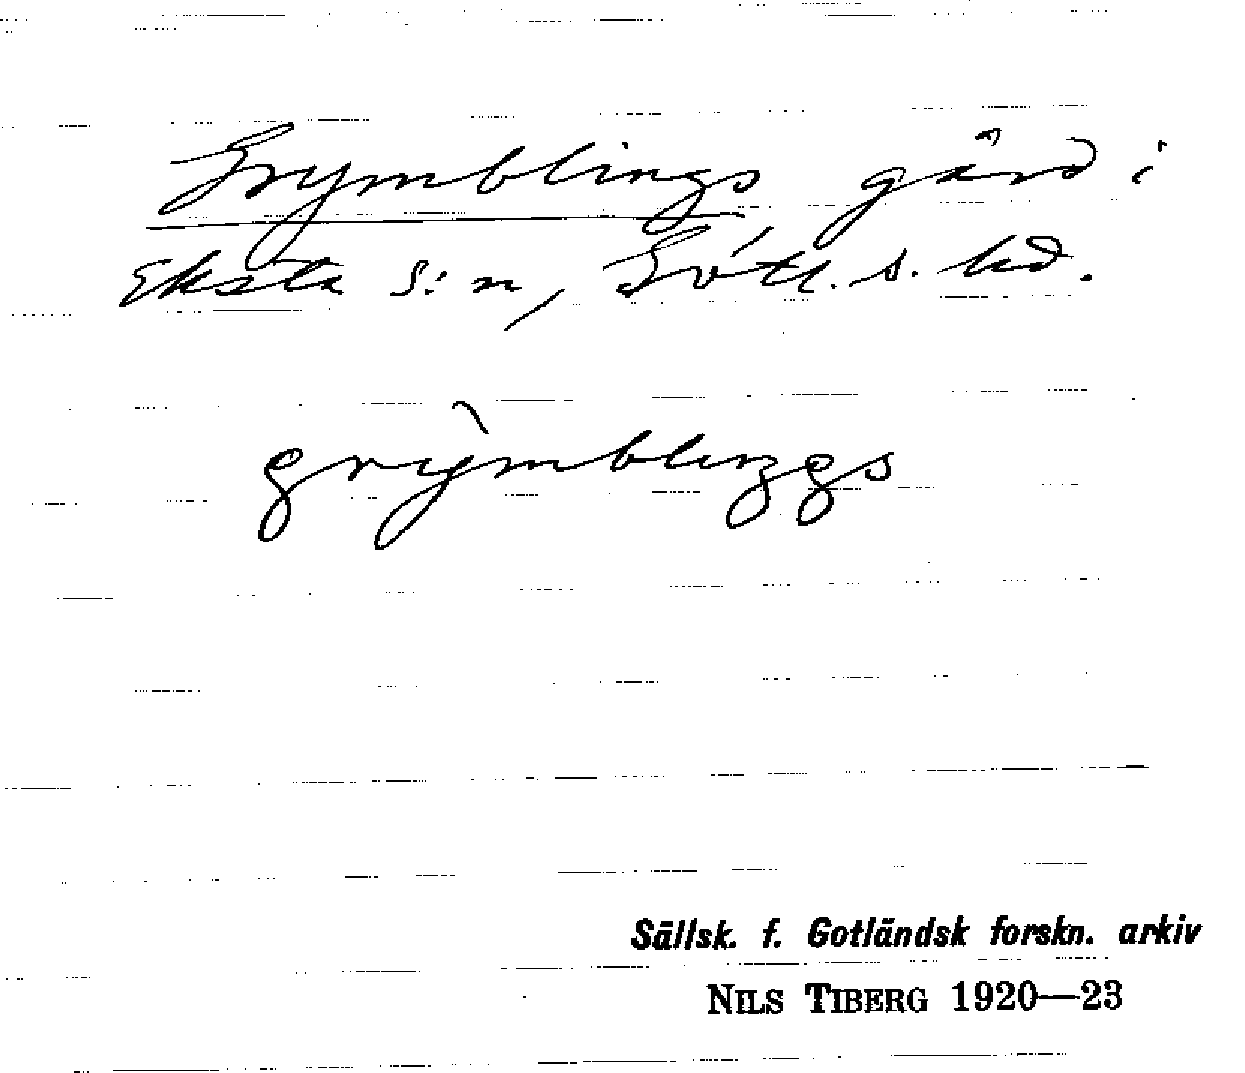 Grymblings gård i
Eksta s:n, Gotl. s. hd.
grỳmblıŋgs
Sällsk. f. Gotländsk forskn. arkiv
NILS TIBERG 1920—23